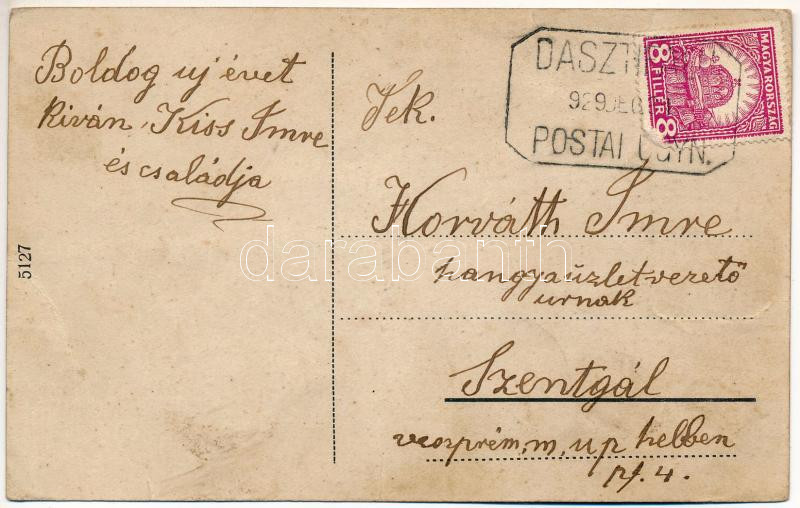 Boldog uj évet
kíván, Kiss Imre
és családja
5127
DASZT
929 DEC
POSTAI ÜGYN.
MAGYARORSZÁG
8 FILLÉR 8
Tek.
Horváth Imre
hangyaüzletvezető
urnak
Szentgál
veszprém, m, u p helben
darabanth